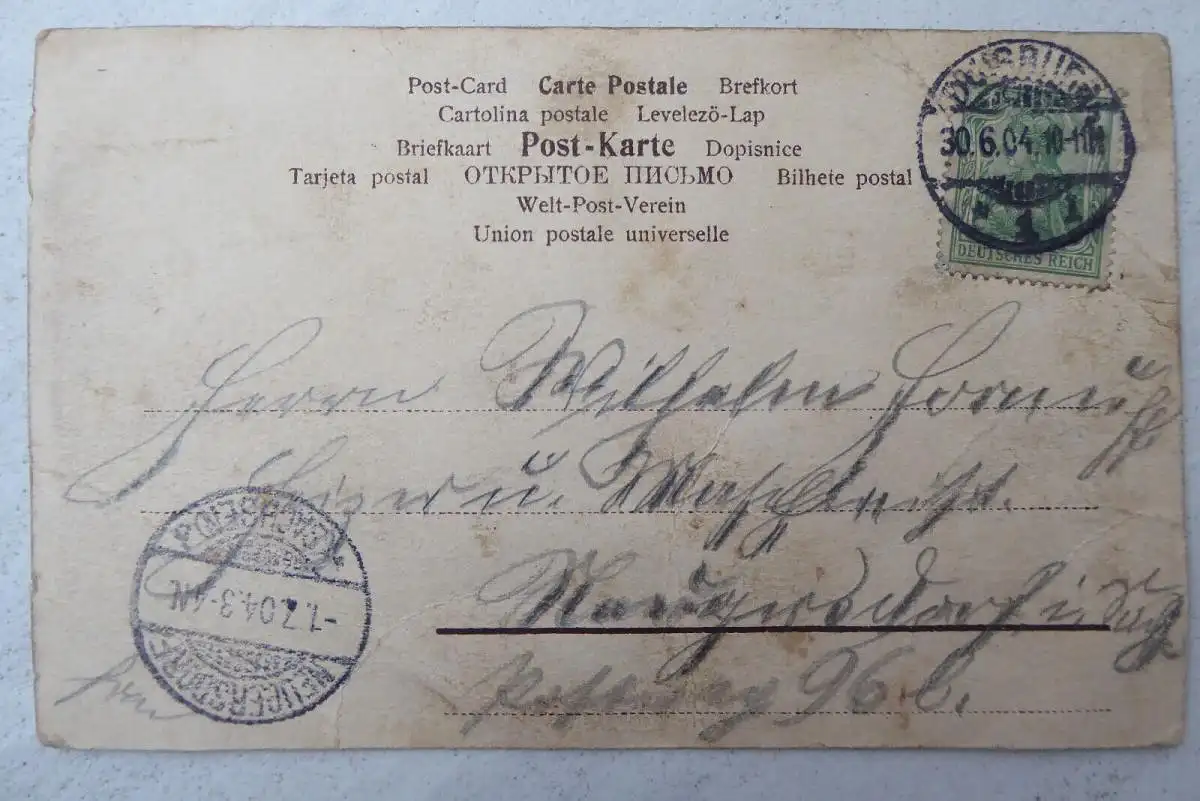 Post-Card Carte Postale Brefkort
Cartolina postale Levelezö-Lap
Briefkaart Post-Karte Dopisnice
Tarjeta postal ОТКРЫТОЕ ПИСЬМО Bilhete postal
Welt-Post-Verein
Union postale universelle
30.6.04.10-11
1
DEUTSCHES REICH
Herrn Wilhelm
u.
-1.7.04.3-4N.
NEUGERSDORF
96 b.